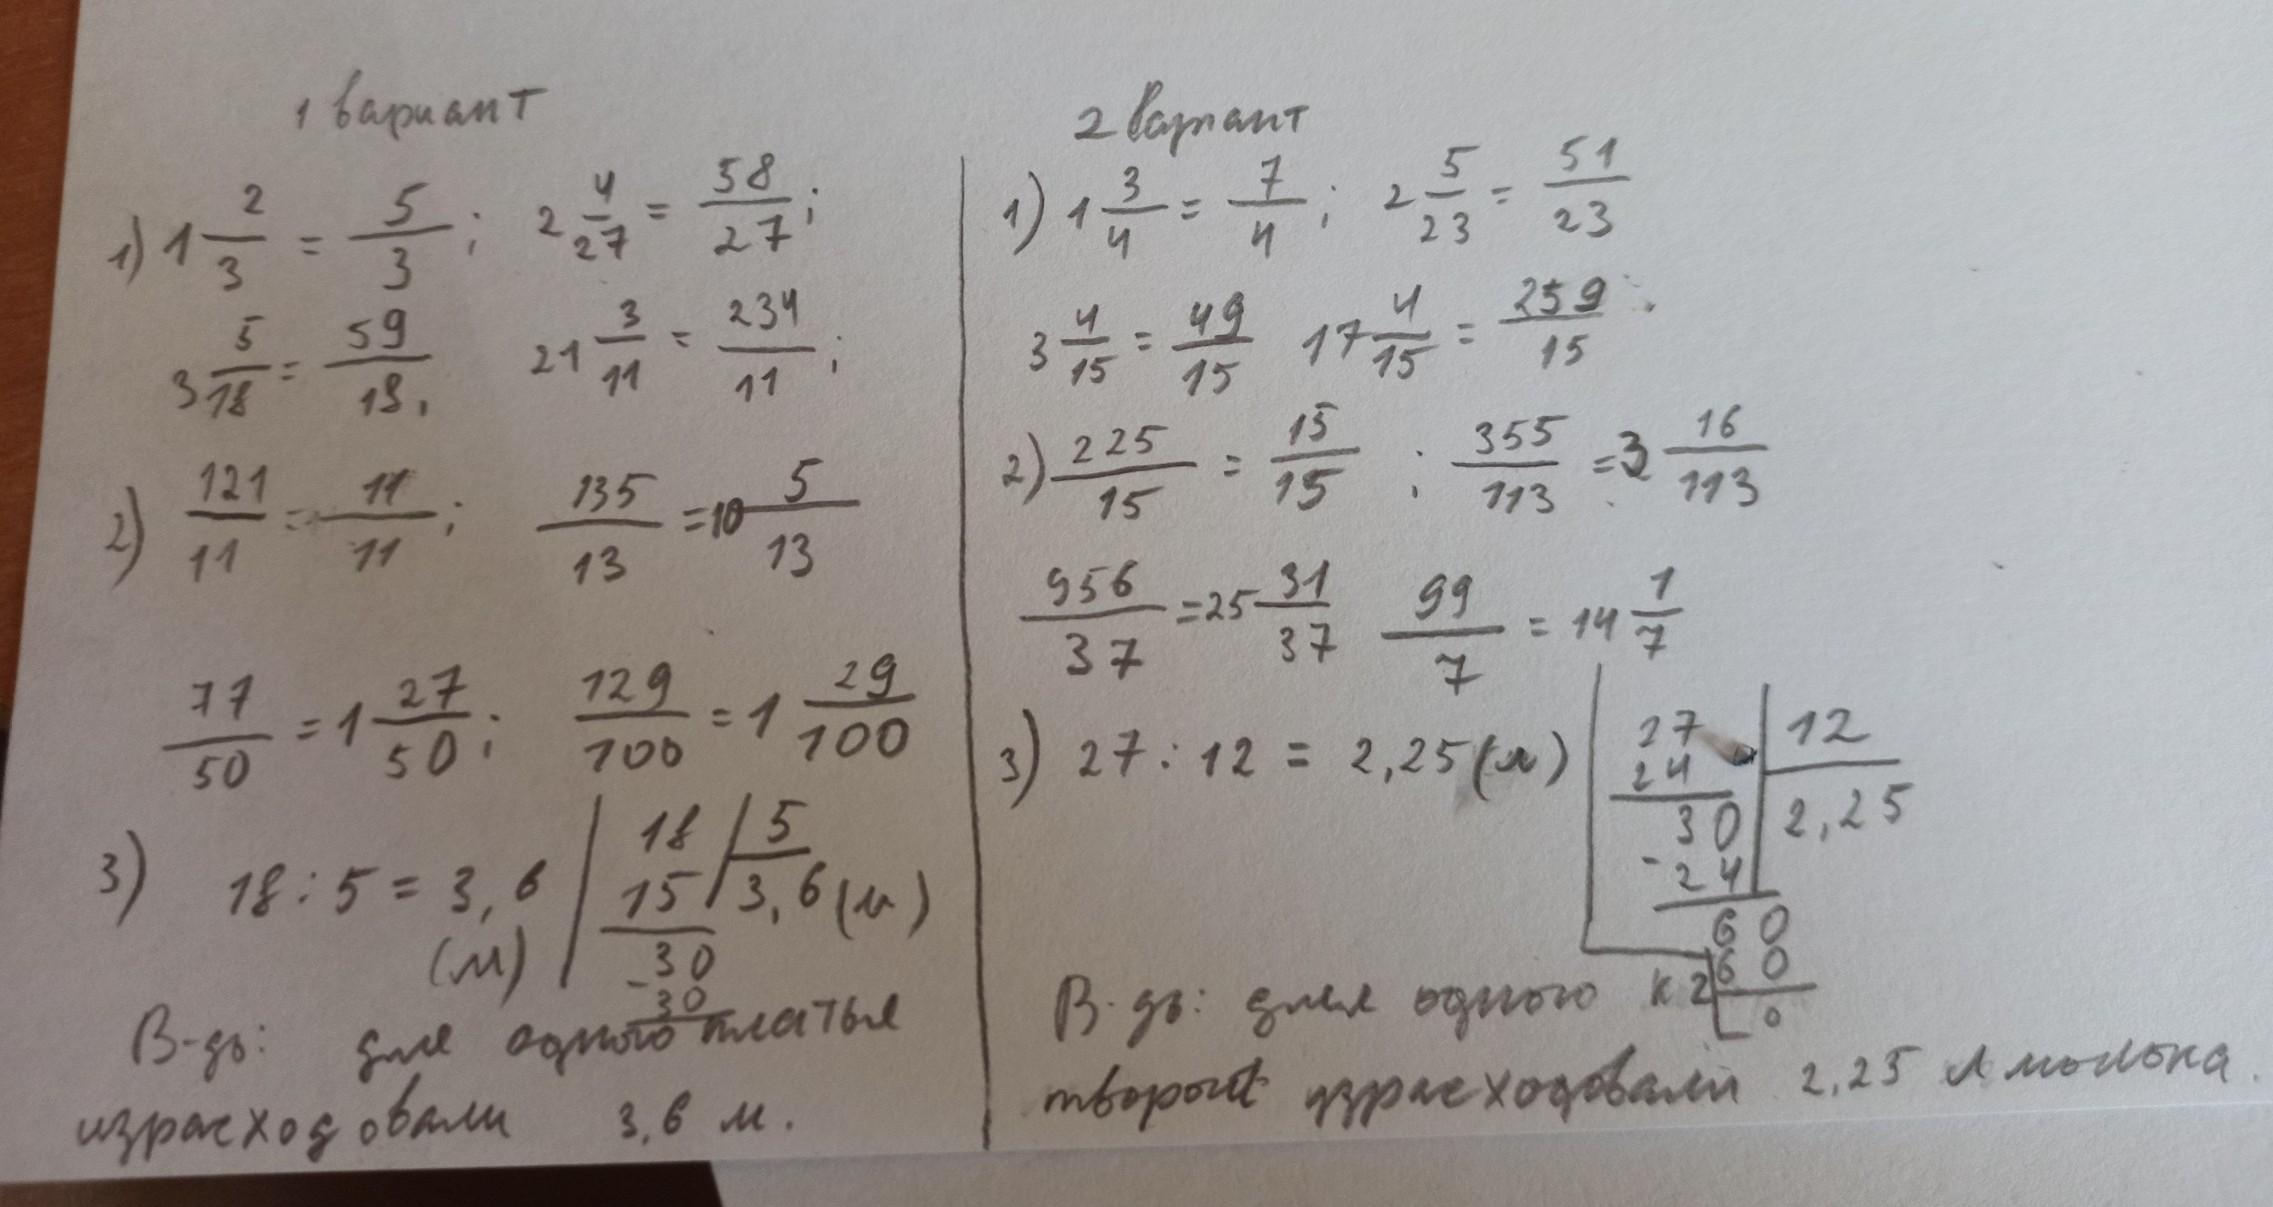 1 вариант
1) 1 2/3 = 5/3; 2 4/27 = 58/27;
3 5/18 = 59/18, 21 3/11 = 234/11;
2) 121/11 = 11/11; 135/13 = 10 5/13
77/50 = 1 27/50; 129/100 = 1 29/100
3) 18 : 5 = 3,6 (м)
18 | 5
15 3,6 (м)
30
- 30
В-дь: для одного платья
израсходовали 3,6 м.
2 вариант
1) 1 3/4 = 7/4; 2 5/23 = 51/23
3 4/15 = 49/15 17 4/15 = 259/15
2) 225/15 = 15/15 ; 355/113 = 3 16/113
956/37 = 25 31/37 99/7 = 14 1/7
3) 27 : 12 = 2,25 (л)
27 | 12
24 2,25
30
- 24
60
60
0
В-дь: для одного кг
творога израсходовали 2,25 л молока.